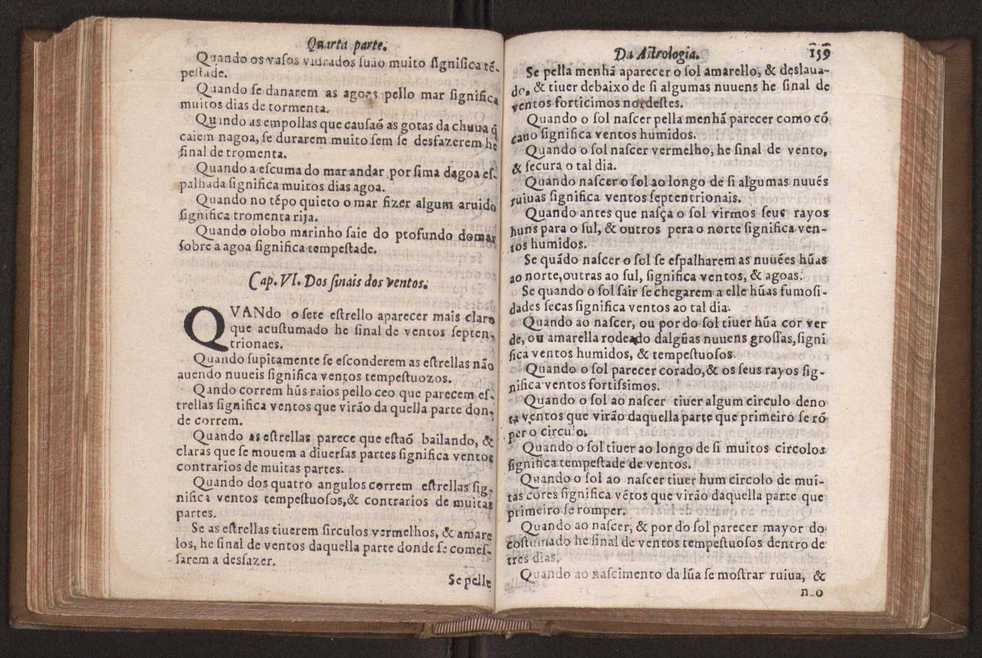 Quarta parte.
Quando os vasos vidrados suão muito significa tẽ-
pestade.
Quando se danarem as agoas pello mar significa
muitos dias de tormenta.
Quando as empollas que causaõ as gotas da chuua q̃
caiem nagoa, se durarem muito sem se desfazerem he
sinal de tromenta.
Quando a escuma do mar andar por sima dagoa es-
palhada significa muitos dias agoa.
Quando no tẽpo quieto o mar fizer algum aruido
significa tromenta rija.
Quando olobo marinho saie do ptofundo domar
sobre a agoa significa tempestade.
Cap. VI. Dos sinais dos ventos.
QVANdo o sete estrello aparecer mais claro
que acustumado he sinal de ventos septen-
trionaes.
Quando supitamente se esconderem as estrellas não
auendo nuueis significa ventos tempestuozos.
Qando correm hũs raios pello ceo que parecem es-
trellas significa ventos que virão da quella parte don-
de correm.
Quando as estrellas parece que estaõ bailando, &
claras que se mouem a diuersas partes significa ventos
contrarios de muitas partes.
Quando dos quatro angulos correm estrellas sig-
nifica ventos tempestuosos, & contrarios de muitas
partes.
Se as estrellas tiuerem sirculos vermelhos, & amare
los, he sinal de ventos daquella parte donde se comes-
sarem a desfazer.
Se pelle
Da Astrologia. 159
Se pella menhã aparecer o sol amarello, & deslaua-
do, & tiuer debaixo de si algumas nuuens he sinal de
ventos forticimos nordestes.
Quando o sol nascer pella menhã parecer como cõ
cauo significa ventos humidos.
Quando o sol nascer vermelho, he sinal de vento,
& secura o tal dia.
Quando nascer o sol ao longo de si algumas nuuẽs
ruiuas significa ventos septentrionais.
Quando antes que nasça o sol virmos seus rayos
huns para o sul, & outros pera o norte significa ven-
tos humidos.
Se quãdo nascer o sol se espalharem as nuuẽes hũas
ao norte, outras ao sul, significa ventos, & agoas.
Se quando o sol sair se chegarem a elle hũas fumosi-
dades secas significa ventos ao tal dia.
Quando ao nascer, ou por do sol tiuer hũa cor ver
de, ou amarella rodeado dalgũas nuuens grossas, signi
fica ventos humidos, & tempestuosos.
Quando o sol parecer corado, & os seus rayos sig-
nifica ventos fortissimos.
Quando o sol ao nascer tiuer algum circulo deno
ta ventos que virão daquella parte que primeiro se rõ
per o circulo.
Quando o sol tiuer ao longo de si muitos circolos
significa tempestade de ventos.
Quando o sol ao nascer tiuer hum circolo de mui-
tas cores significa vẽtos que virão daquella parte que
primeiro se romper.
Quando ao nascer, & por do sol parecer mayor do
costumado he sinal de ventos tempestuosos dentro de
tres dias.
Quando ao nascimento da lũa se mostrar ruiua, &
n-o